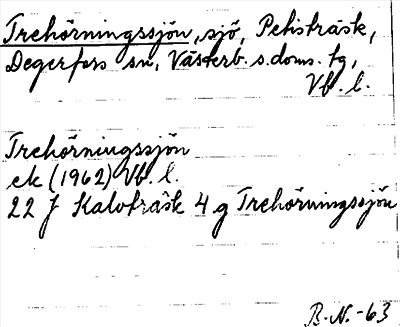 Trehörningssjön, sjö, Petisträsk,
Degerfors sn, Västerb. s. doms. tg,
Vb. l.
Trehörningssjön
ek (1962) Vb. l.
22 J Kalvträsk 4 g Trehörningssjön
B.N.-63